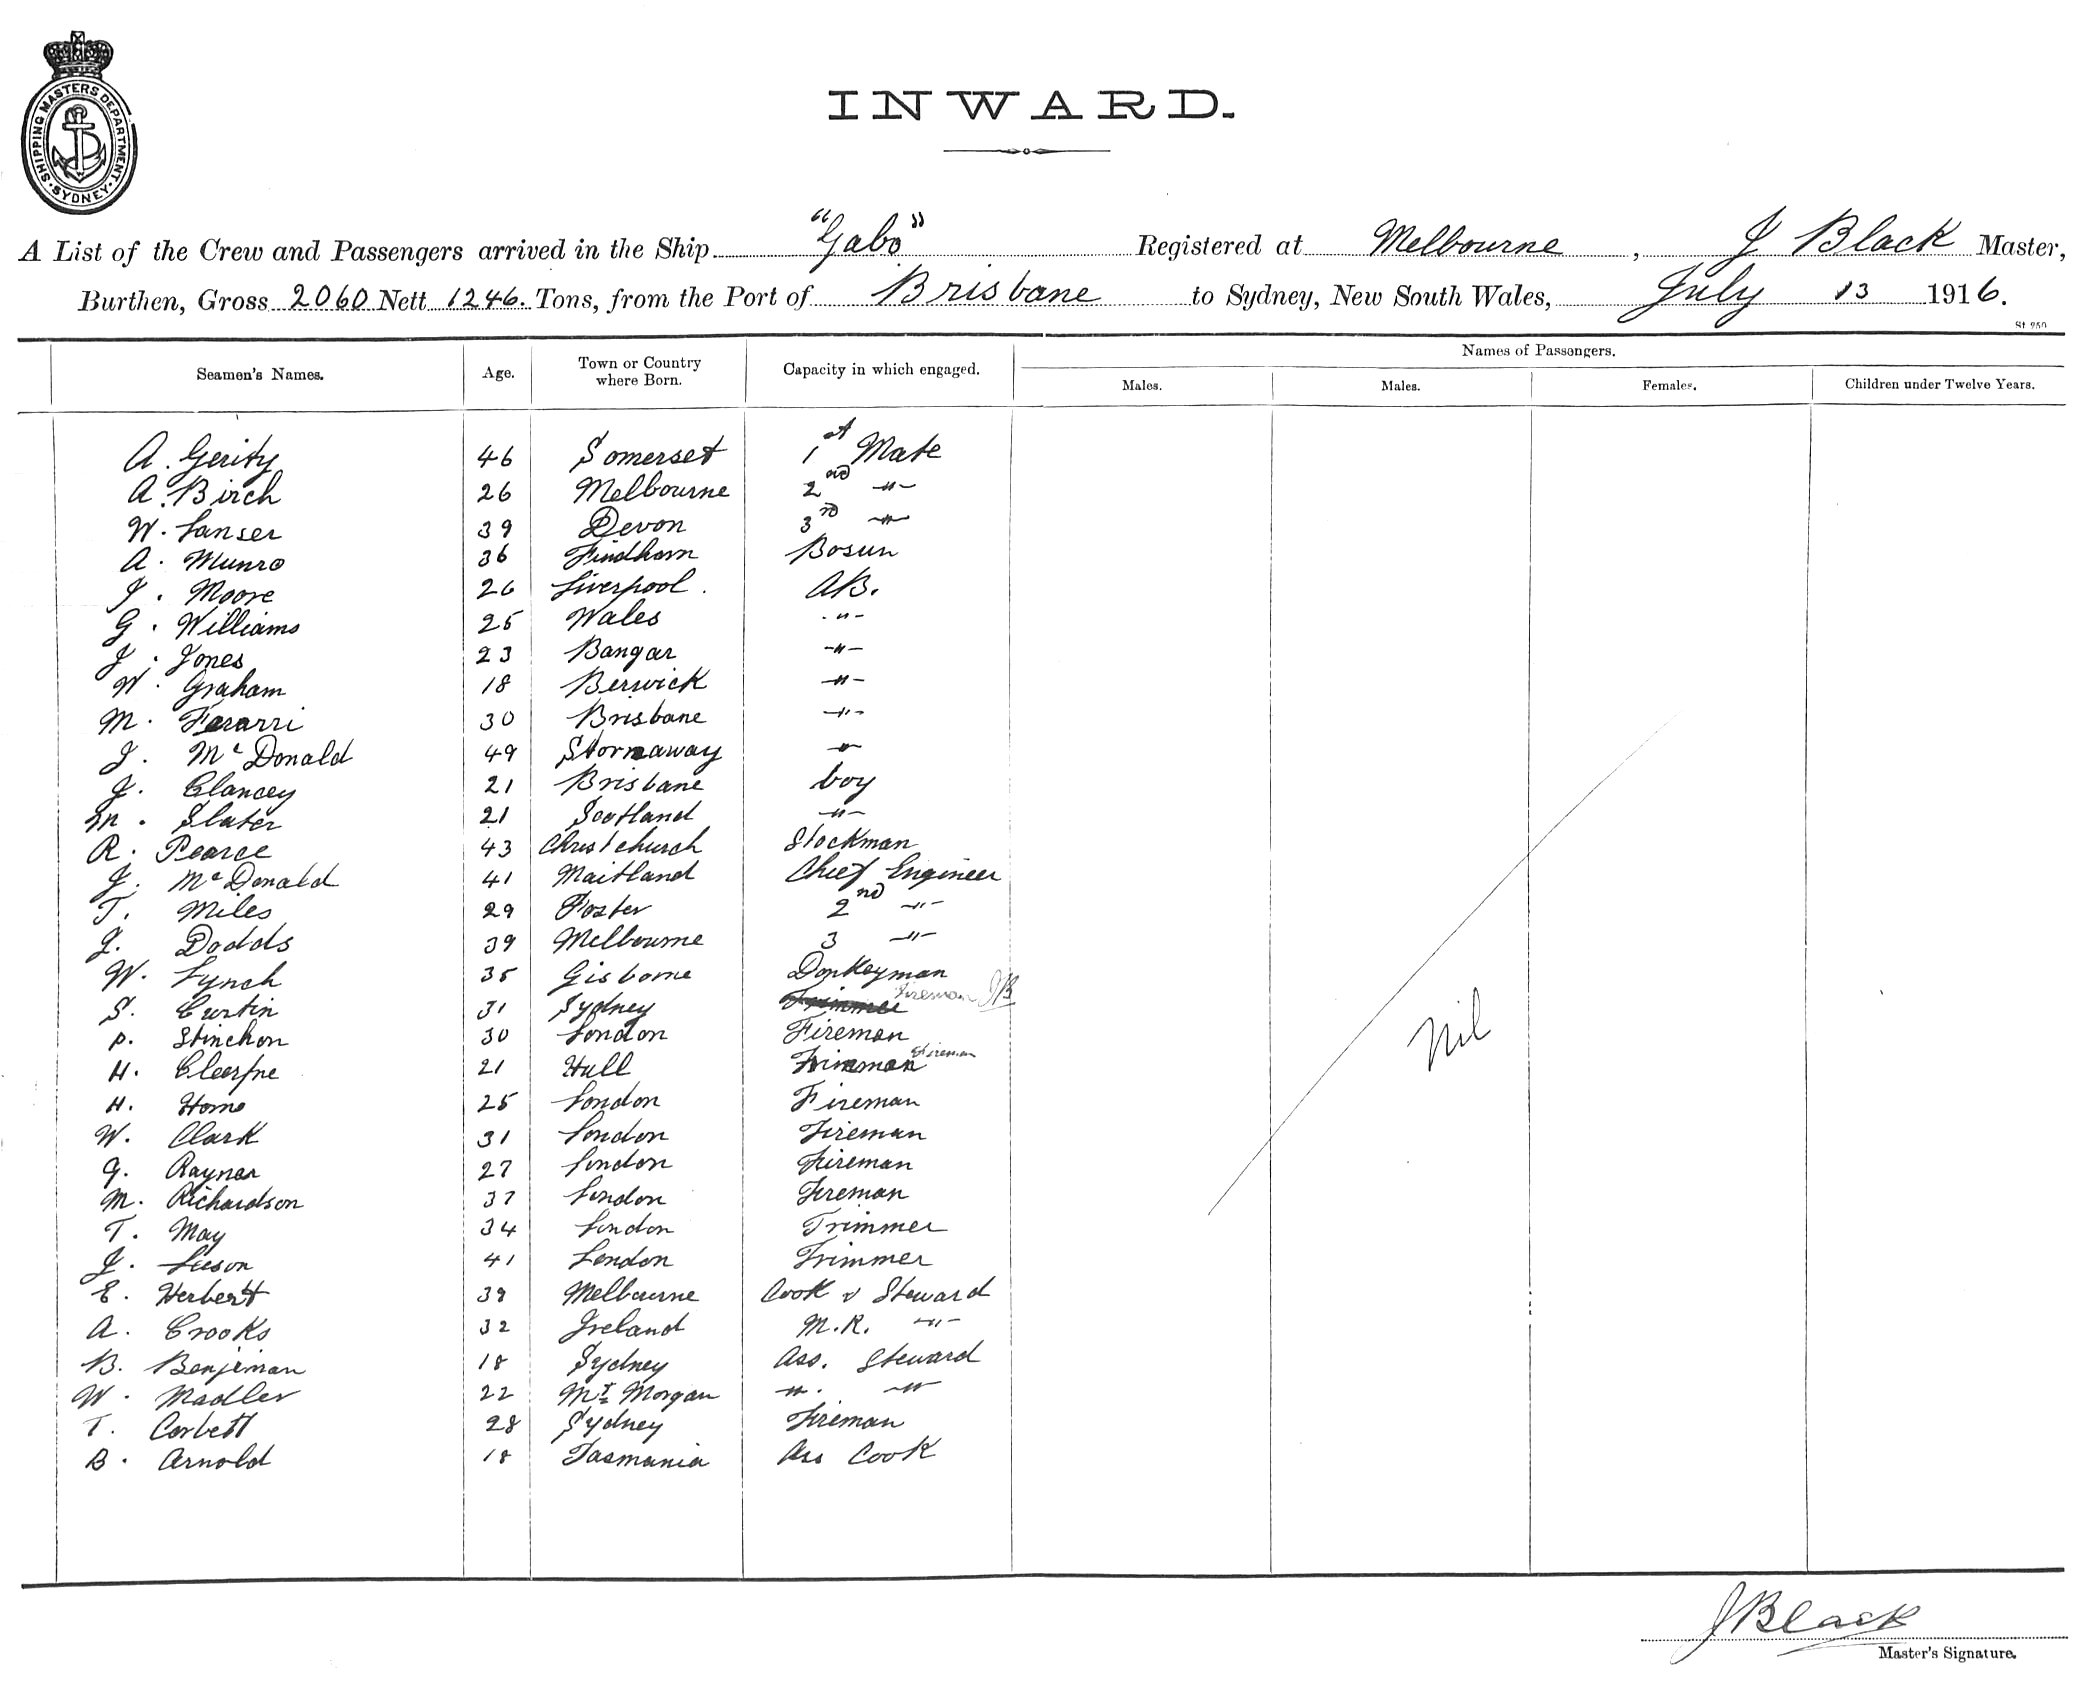 SHIPPING MASTERS DEPARTMENT. SYDNEY.
INWARD.
A List of the Crew and Passengers arrived in the Ship "Gabo" Registered at Melbourne, J Black Master,
Burthen, Gross 2060 Nett 1246. Tons, from the Port of Brisbane to Sydney, New South Wales, July 13 1916.
St 250
Names of Passengers.
Seamen's Names. Age. Town or Country where Born. Capacity in which engaged. Males. Males. Females. Children under Twelve Years.
A. Gerity 46 Somerset 1st Mate
A. Birch 26 Melbourne 2nd -"-
W. Lanser 39 Devon 3rd -"-
A. Munro 36 Findhorn Bosun
J. Moore 26 Liverpool. AB.
G. Williams 25 Wales -"-
J. Jones 23 Bangar -"-
W. Graham 18 Berwick -"-
M. Ferarri 30 Brisbane -"-
J. McDonald 49 Stornaway -"-
J. Clancey 21 Brisbane boy
M. Slater 21 Scotland -"-
R. Pearce 43 Christchurch Stockman
J. McDonald 41 Maitland Chief Engineer
T. Miles 29 Foster 2nd -"-
J. Dodds 39 Melbourne 3 -"-
W. Lynch 35 Gisborne Donkeyman
S. Curtin 31 Sydney Trimmer Fireman JB
P. Stinchon 30 London Fireman
H. 21 Hull Fireman
H. Horne 25 London Fireman
W. Clark 31 London Fireman
G. Rayner 27 London Fireman
M. Richardson 37 London Fireman
T. May 34 London Trimmer
J. Leeson 41 London Trimmer
E. Herbert 39 Melbourne Cook & Steward
A. Crooks 32 Ireland M.R. -"-
B. Benjeman 18 Sydney Ass. Steward
W. Madler 22 Mt Morgan -"- -"-
T. Corbett 28 Sydney Fireman
B. Arnold 18 Tasmania Ass Cook
Nil
J Black
Master's Signature.